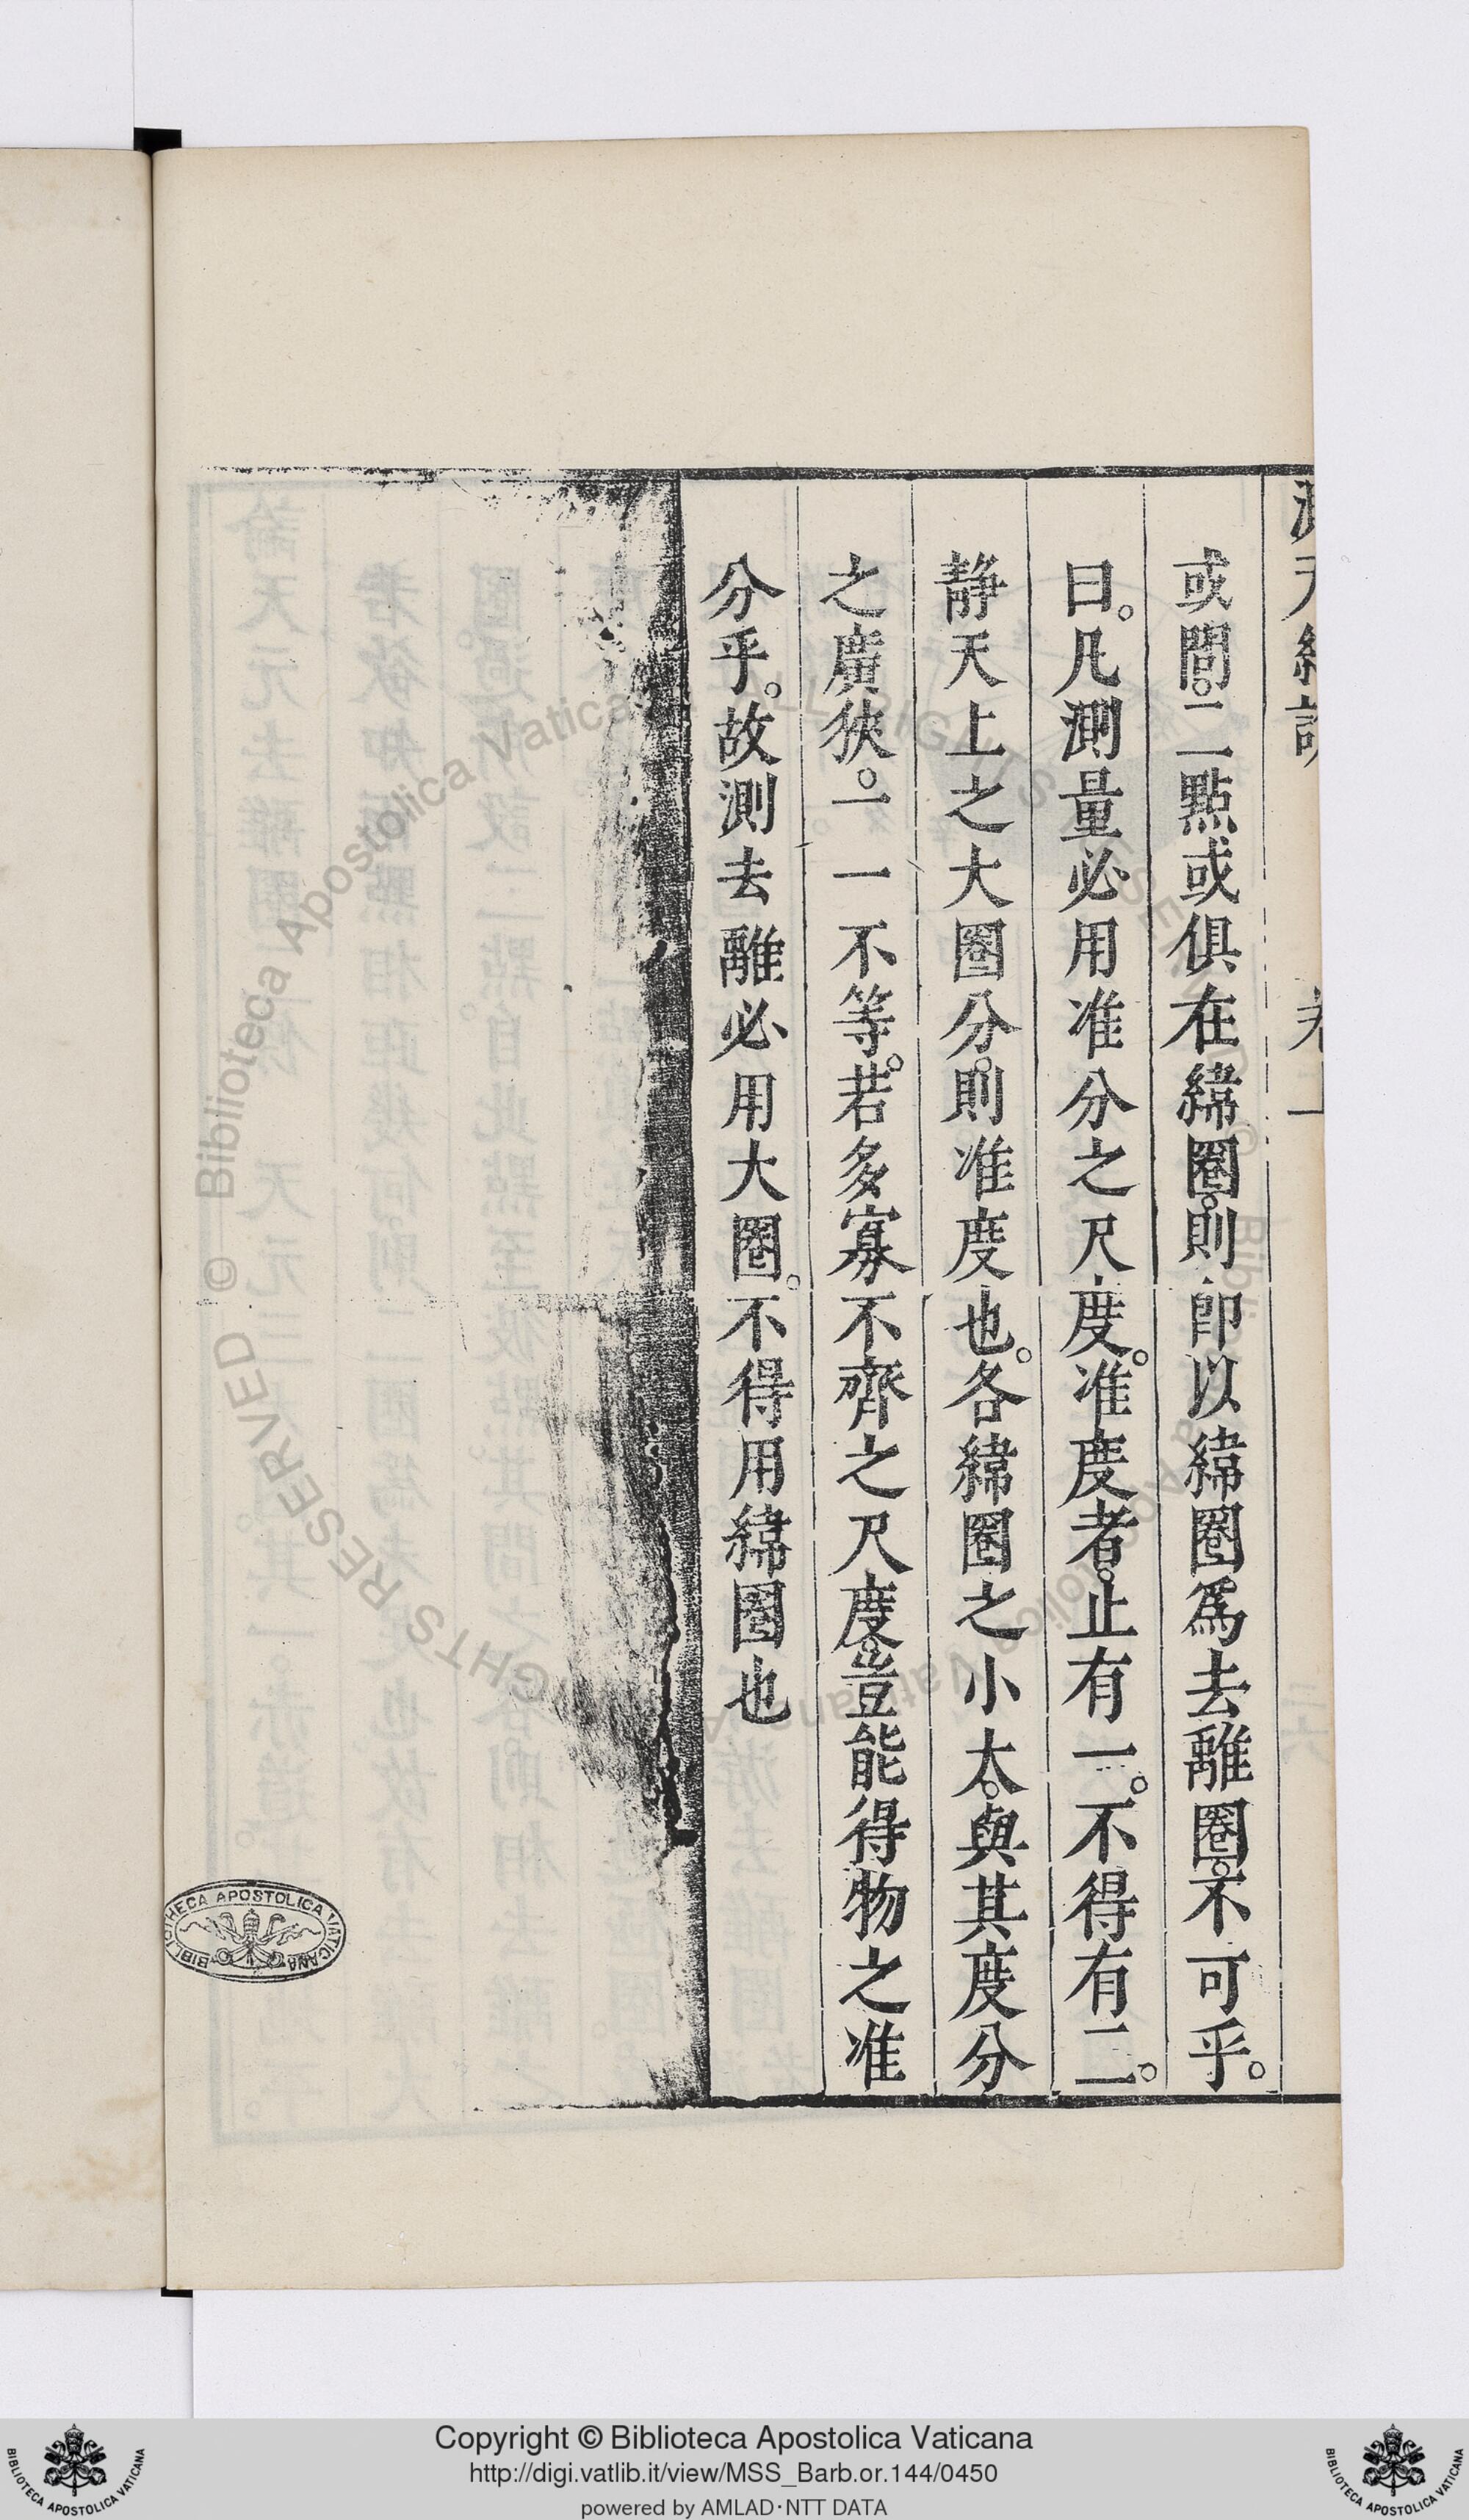 或問。二點或俱在緯圈。則卽以緯圈爲去離圈。不可乎。
曰。凡測量必用准分之尺度。准度者。止有一。不得有二。
静天上之大圈分。則准度也。各緯圈之小大。與其度分
之廣狹。一一不等。若多寡不齊之尺度。豈能得物之准
分乎。故測去離必用大圈。不得用緯圈也
BIBLIOTHECA APOSTOLICA VATICANA
Copyright © Biblioteca Apostolica Vaticana
http://digi.vatlib.it/view/MSS_Barb.or.144/0450
powered by AMLAD·NTT DATA